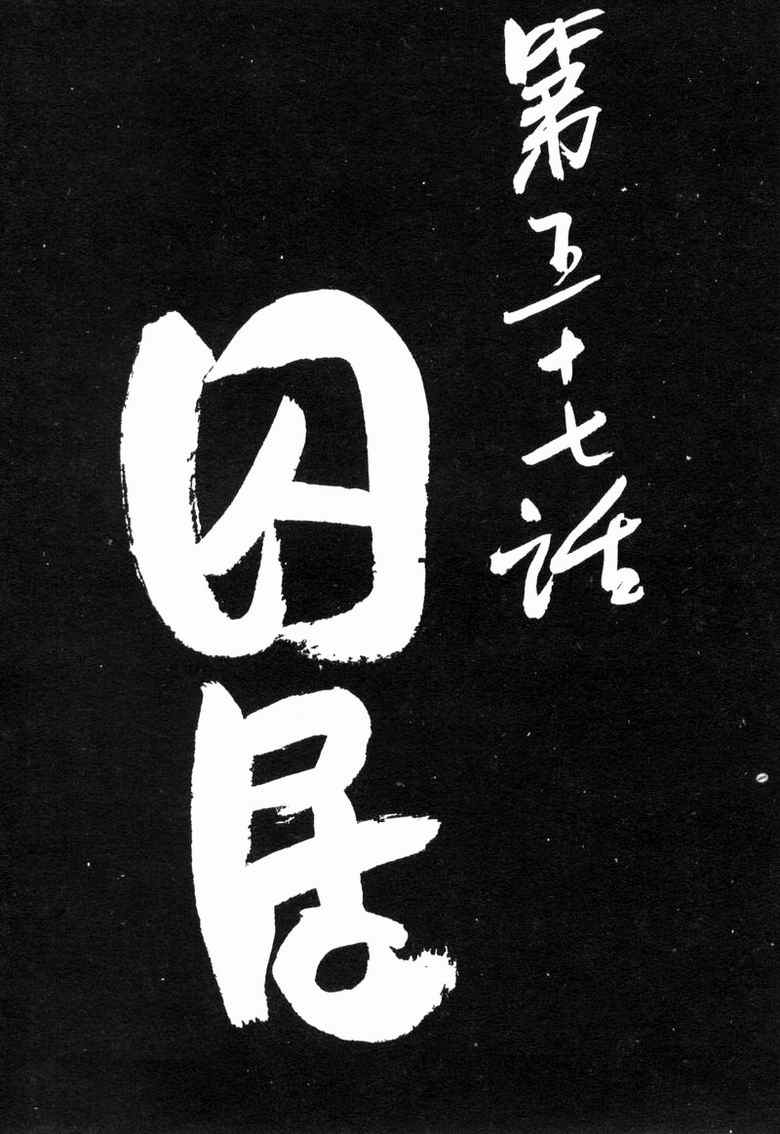 第五十七話
囚居